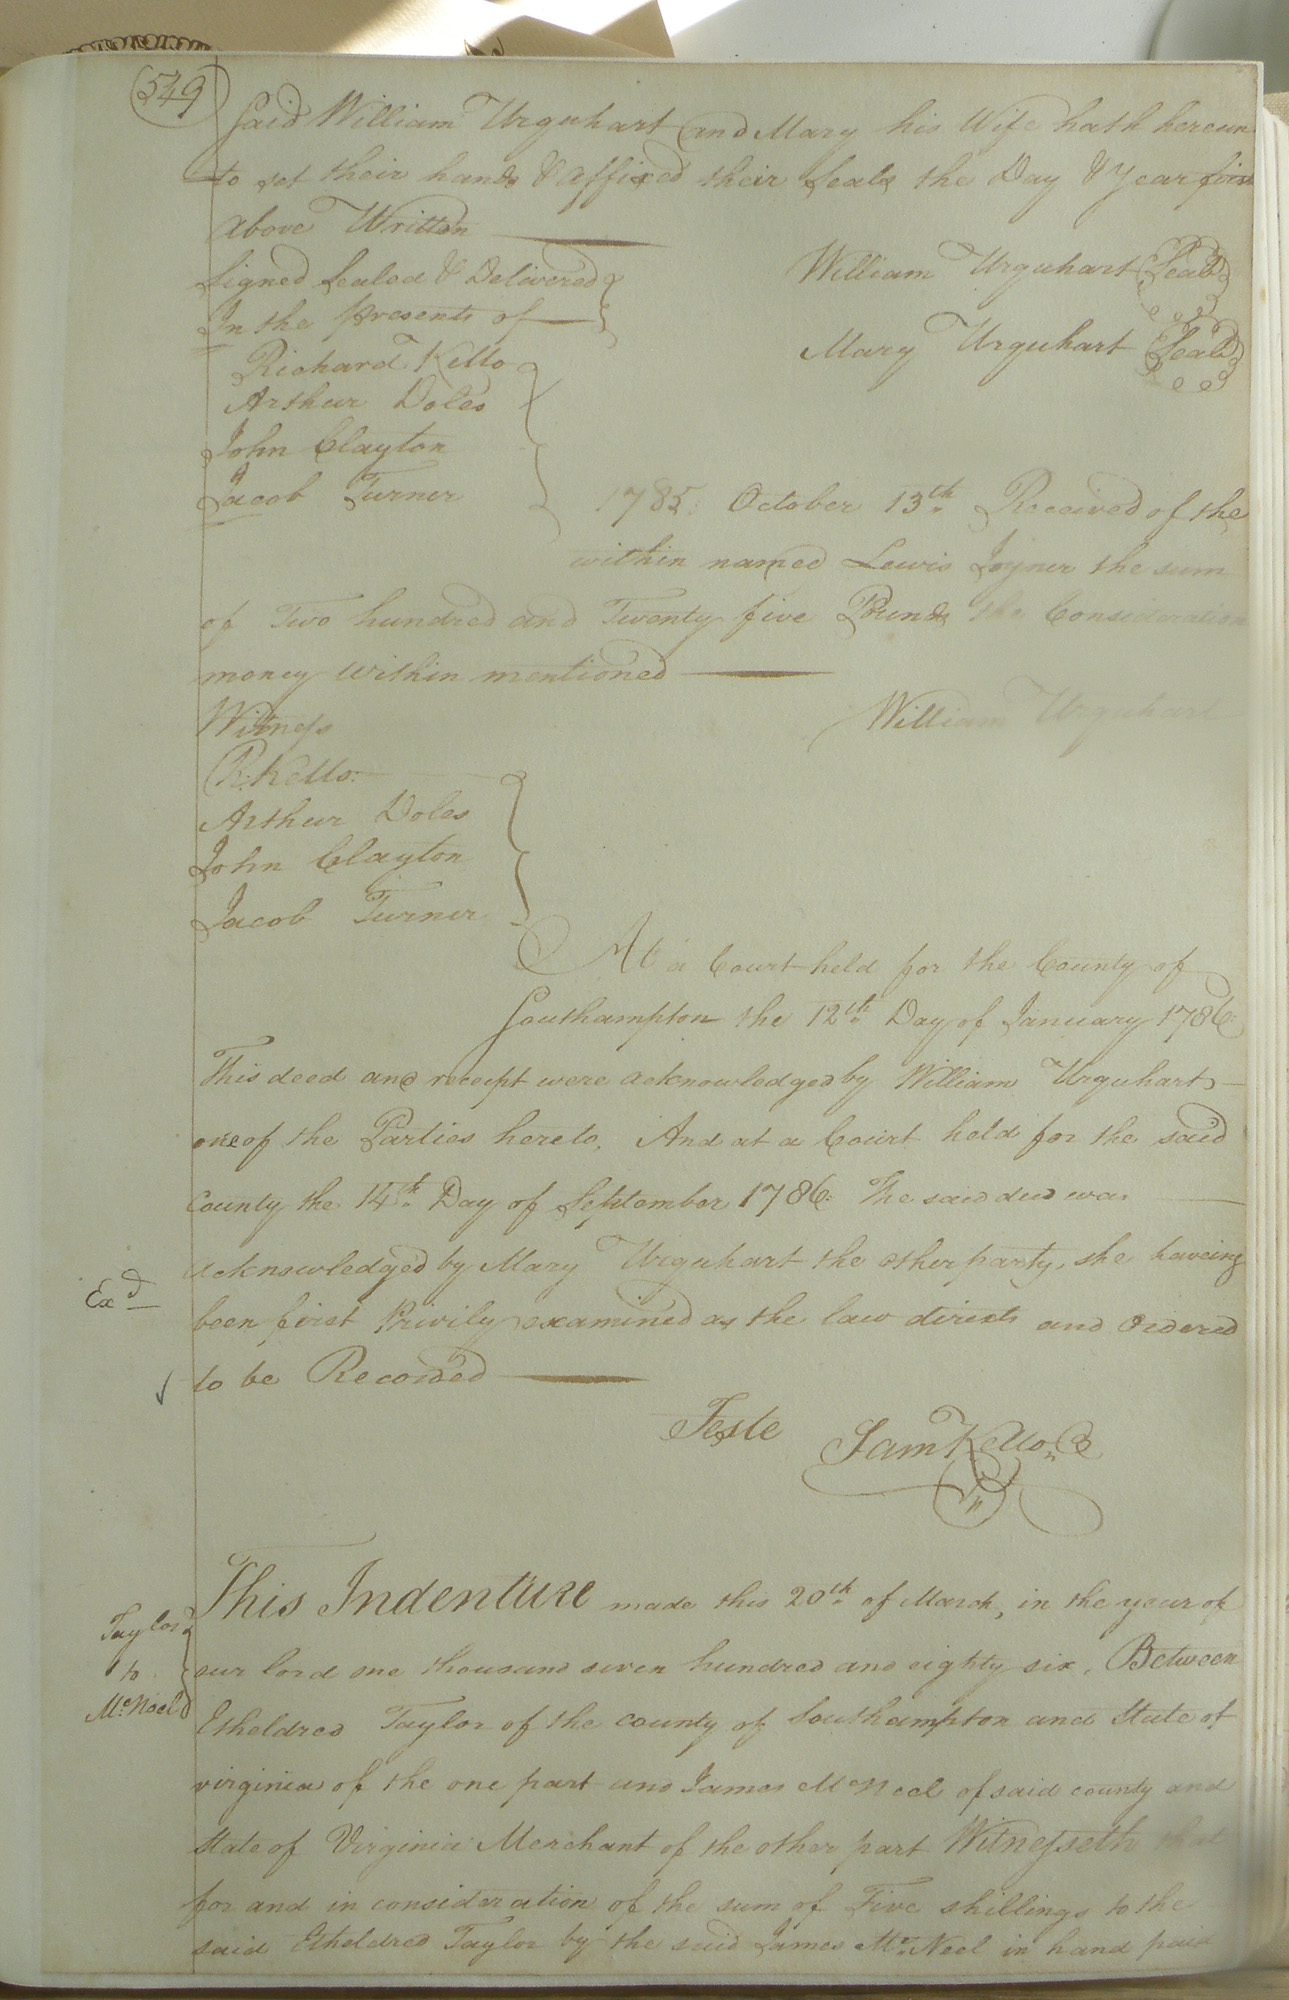 549
Said William Urquhart and Mary his Wife hath hereun
to set their hands & Affixed their Seals the Day & Year first
above Written
Signed Sealed & Delivered
In the Presents of
William Urquhart Seal
Mary Urquhart Seal
Richard Kello
Arthur Doles
John Clayton
Jacob Turner
1785. October 13th. Received of the
within named Lewis Joyner the sum
of Two hundred and Twenty five Pounds the Consideration
money within mentioned
Witness
William Urquhart
R: Kello:
Arthur Doles
John Clayton
Jacob Turner
At a Court held for the County of
Southampton the 12th. Day of January 1786:
This deed and receipt were acknowledged by William Urquhart
one of the Parties hereto. And at a Court held for the said
County the 14th. Day of September 1786: The said deed was
acknowledged by Mary Urquhart the other party, she haveing
Exd
been first Privily examined as the law directs and Ordered
to be Recorded
Teste Sam Kello, C
This Indenture made this 20th. of March, in the year of
Taylor
to
McNeel
our lord one thousand seven hundred and eighty six, Between
Etheldred Taylor of the county of Southampton and State of
virginia of the one part and James McNeel of said county and
State of Virginia Merchant of the other part Witnesseth that
for and in consideration of the sum of Five shillings to the
said Etheldred Taylor by the said James Mc.Neel in hand paid